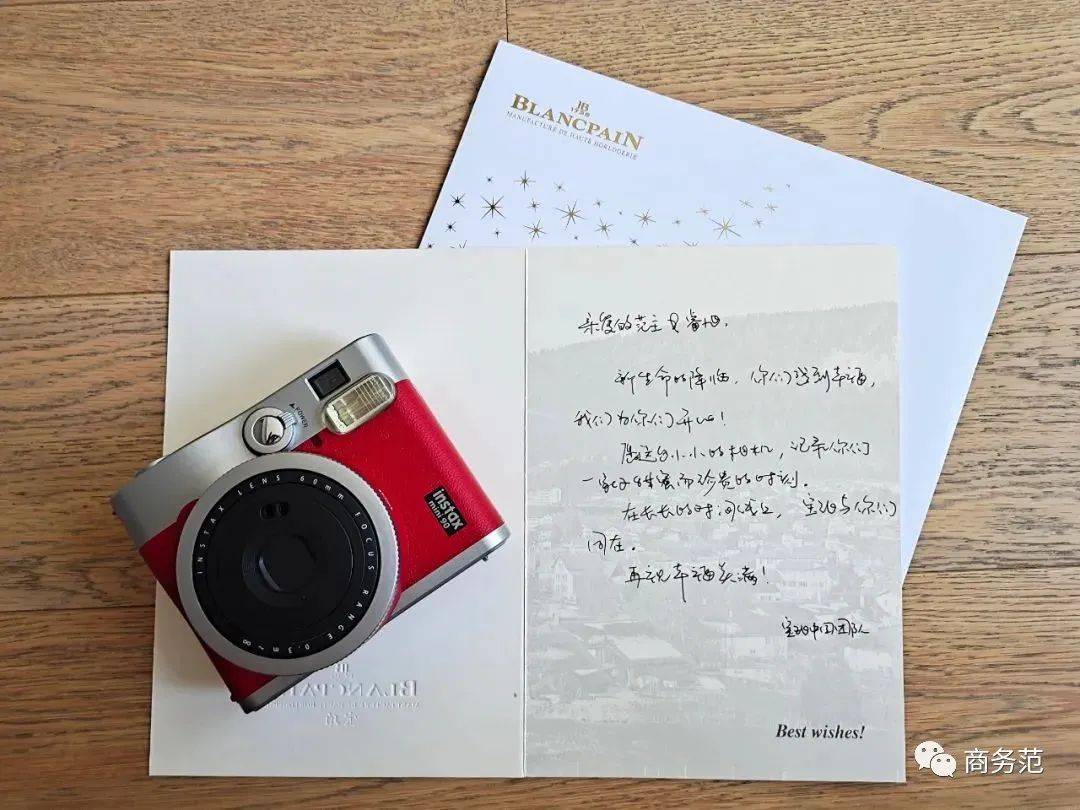 JB
1735
BLANCPAIN
MANUFACTURE DE HAUTE HORLOGERIE
亲爱的范主
新生命的降临,你们感到幸福,
我们为你们开心!
愿这台小小的相机,记录你们
一家子甜蜜而珍贵的时刻.
在长长的时间线上,宝珀与你们
同在.
再祝幸福美满!
宝珀中国团队
Best wishes!
POWER
INSTAX LENS 60mm FOCUS RANGE 0.3m~∞
instax
mini 90
JB
BLANCPAIN
宝珀
商务范